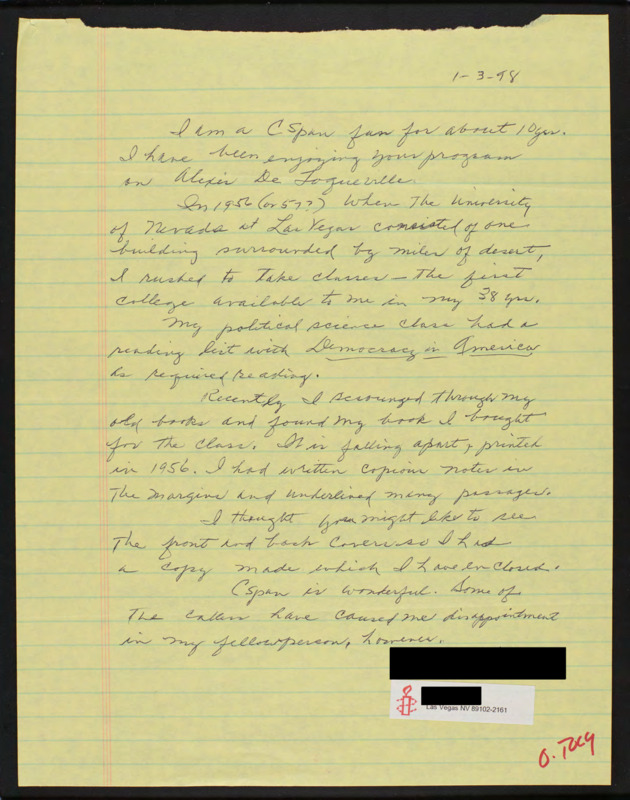 1-3-98
I am a CSpan fan for about 10 yrs.
I have been enjoying your program
on Alexis De Toqueville.
In 1956 (or 57?) when the University
of Nevada at Las Vegas consisted of one
building surrounded by miles of desert,
I rushed to take classes — the first
college available to me in my 38 yrs.
My political science class had a
reading list with Democracy in America
as required reading.
Recently I scrounged through my
old books and found my book I bought
for the class. It is falling apart, printed
in 1956. I had written copious notes in
the margins and underlined many passages.
I thought you might like to see
the front and back covers so I had
a copy made which I have enclosed.
CSpan is wonderful. Some of
the callers have caused me disappointment
in my fellowperson, however.
Las Vegas NV 89102-2161
O. Tocq